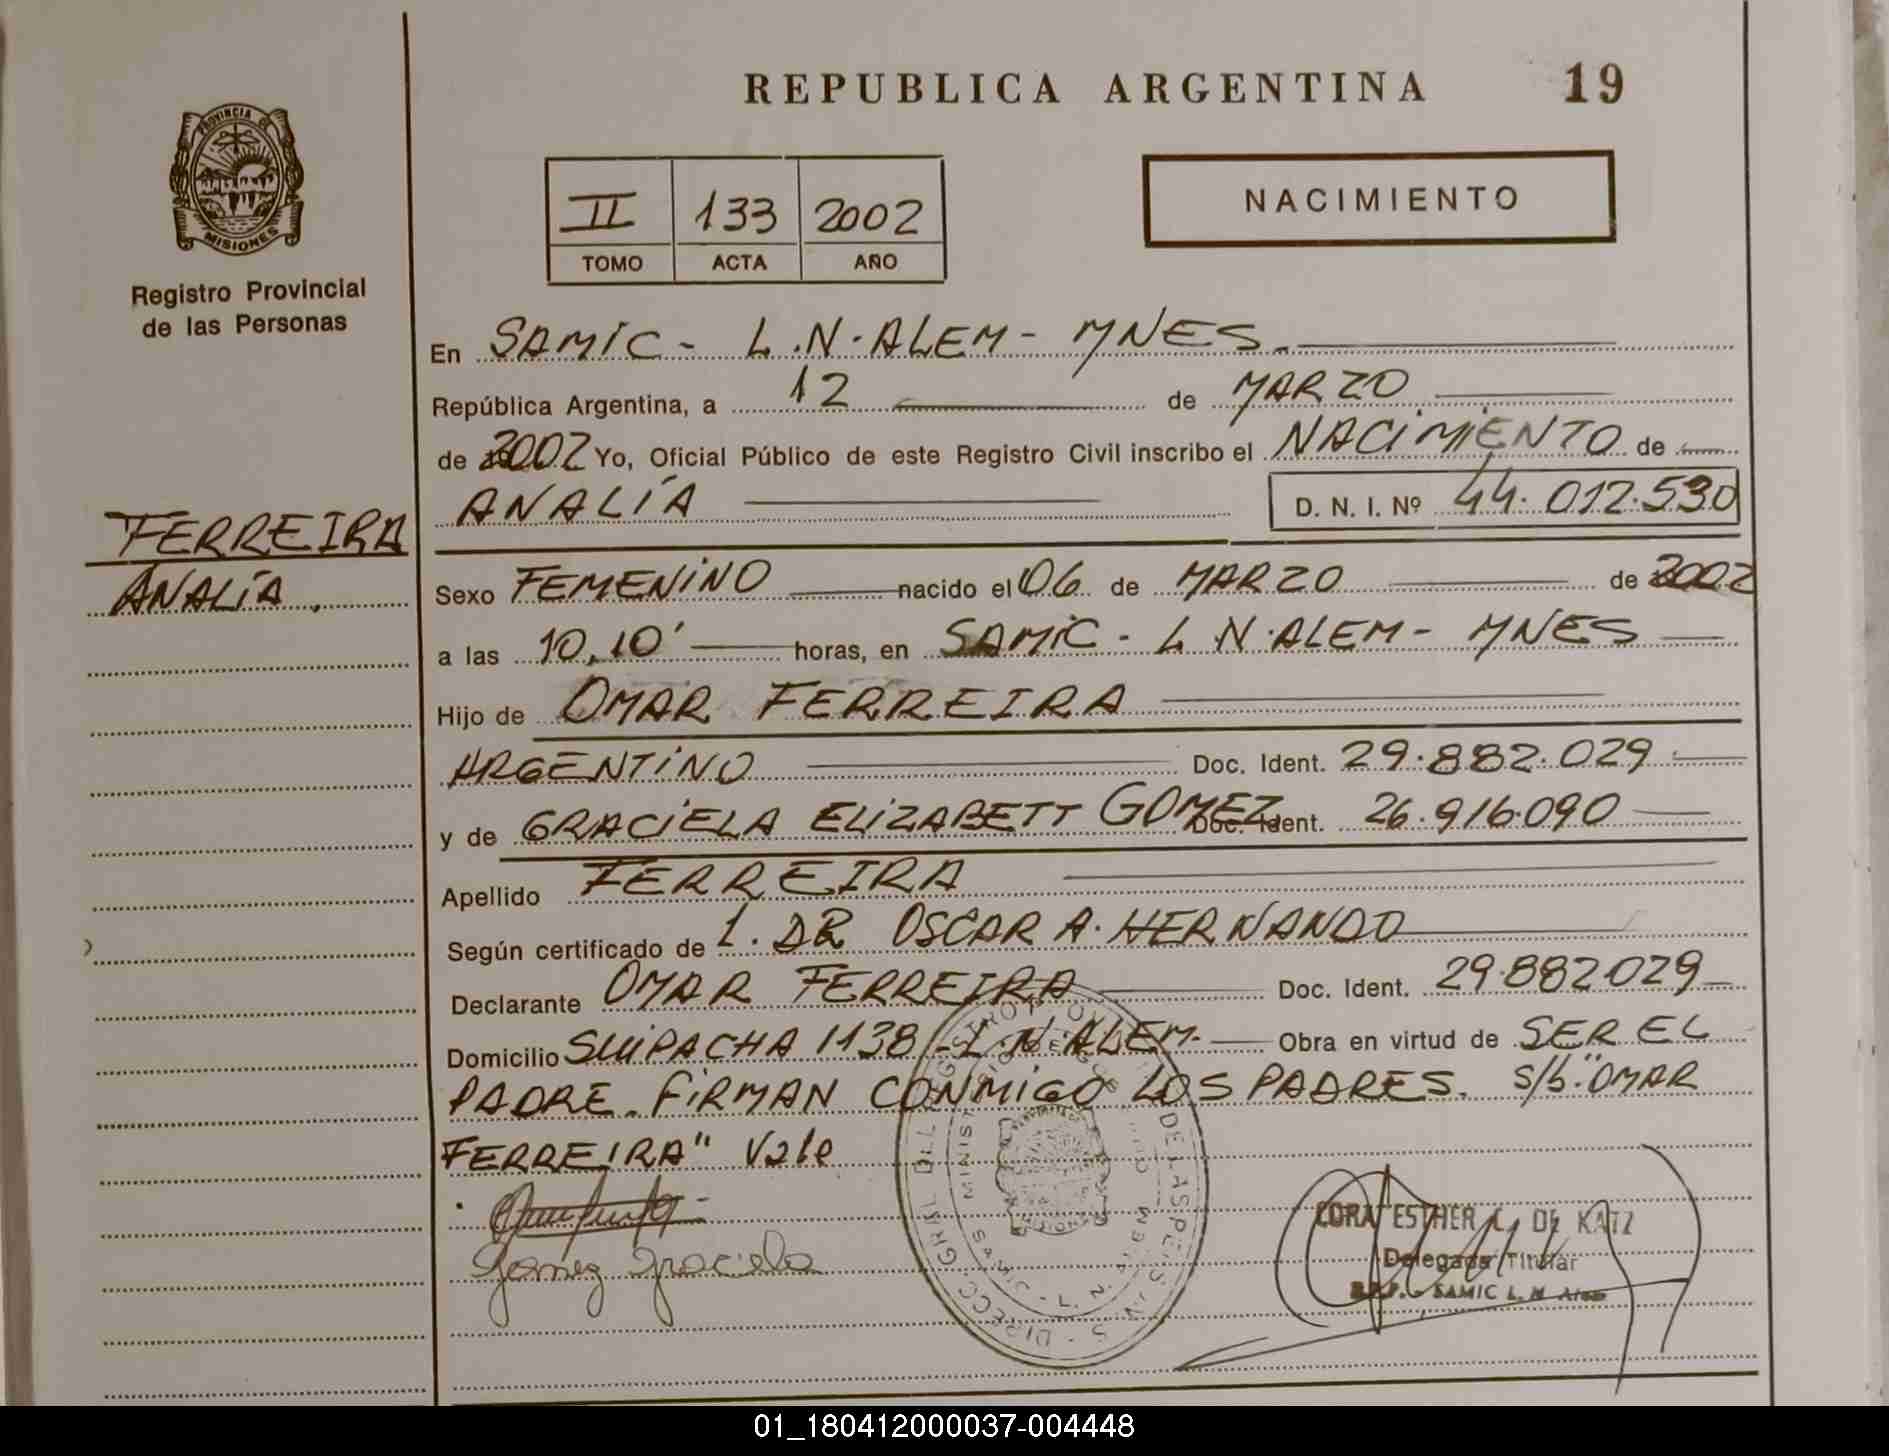 REPUBLICA ARGENTINA 19
PROVINCIA DE
MISIONES
Registro Provincial
de las Personas
II 133 2002
TOMO ACTA AÑO
NACIMIENTO
En SAMIC - L.N.ALEM - MNES.
República Argentina, a 12 de MARZO
de 2002 Yo, Oficial Público de este Registro Civil inscribo el NACIMIENTO de
ANALÍA D. N. I. Nº 44.012.530
FERREIRA
ANALÍA.
Sexo FEMENINO nacido el 06 de MARZO de 2002
a las 10,10' horas, en SAMIC - L N.ALEM - MNES
Hijo de OMAR FERREIRA
ARGENTINO Doc. Ident. 29.882.029
y de GRACIELA ELIZABETT GOMEZ Doc. Ident. 26.916.090
Apellido FERREIRA
Según certificado de 1. DR OSCAR A. HERNANDO
Declarante OMAR FERREIRA Doc. Ident. 29.882029
Domicilio SUIPACHA 1138 - L.N.ALEM. Obra en virtud de SER EL
PADRE. FIRMAN CONMIGO LOS PADRES. S/b. "OMAR
FERREIRA" Vale
Gomez Graciela
CORA ESTHER DE KATZ
Delegada Titular
R.P.P. - SAMIC L. N Alem
01_180412000037-004448